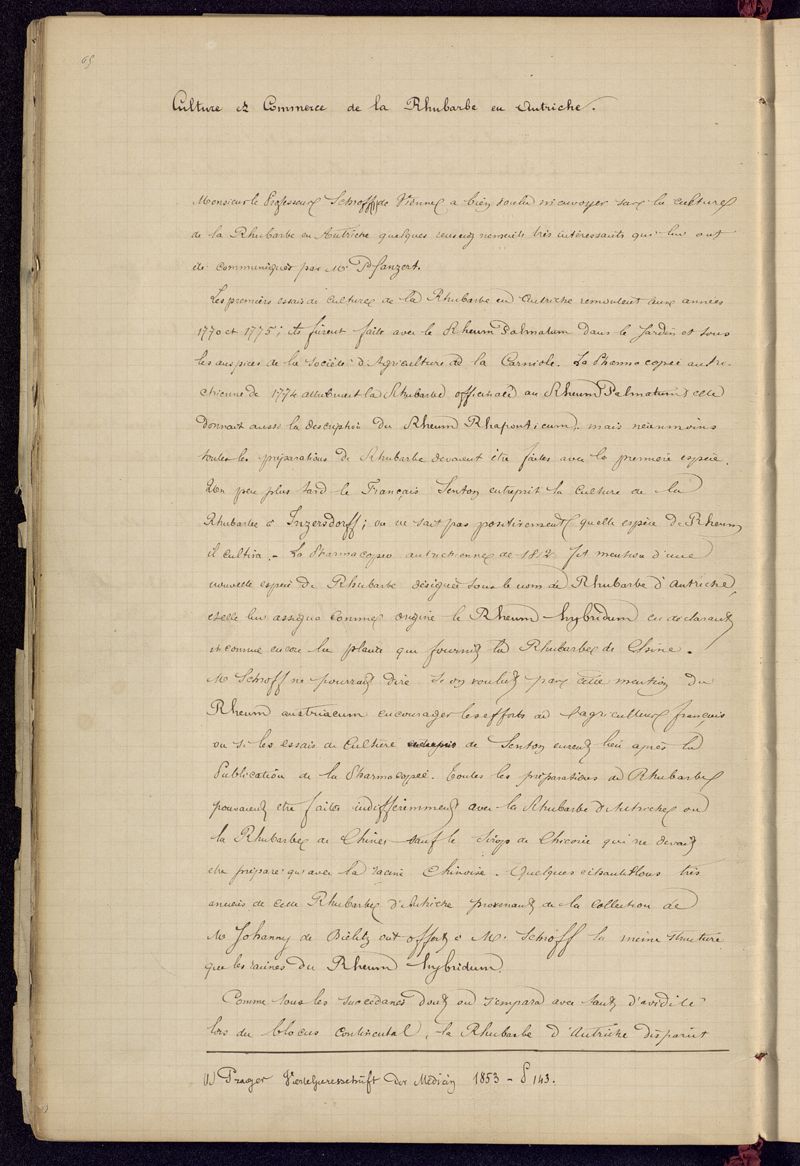 65
Culture et Commerce de la Rhubarbe en Autriche.
Monsieur le Professeur Schroff de Vienne a bien voulu m'envoyer sur la culture
de la Rhubarbe en Autriche quelques renseignements très intéressants qui lui ont
été communiqués par Mr
Les premiers essais de culture de la Rhubarbe en Autriche remontent aux années
1770 et 1775; ils furent faits avec le Rheum Palmatum dans le Jardin et sous
les auspices de la Société d'Agriculture de la Carniole. La Pharmacopée autri-
chienne de 1774 attribuait la Rhubarbe officinale au Rheum Palmatum; elle
donnait aussi la description du Rheum Rhaponticum, mais néanmoins
toutes les préparations de Rhubarbe devaient être faites avec la première espèce.
Un peu plus tard le Français Senton entreprit la culture de la
Rhubarbe à Inzersdorff; on ne sait pas positivement quelle espèce de Rheum
il cultiva. - La Pharmacopée autrichienne de fit mention d'une
nouvelle espèce de Rhubarbe désignée sous le nom de Rhubarbe d'Autriche,
et elle lui assigna comme origine le Rheum hybridum en declarant
inconnue encore la plante qui fournit la Rhubarbe de Chine.
Mr Schroff ne pourrait dire si on voulut par cette mention du
Rheum austriacum encourager les efforts de l'agriculteur français
ou si les essais de culture de Senton eurent lieu après la
Publication de la Pharmacopée. Toutes les préparations de Rhubarbe
pouvaient etre faites indifféremment avec la Rhubarbe d'Autriche ou
la Rhubarbe de Chine, sauf le Sirop de Chicorée qui ne devait
etre préparé qu'avec la racine Chinoise. Quelques echantillons très
anciens de cette Rhubarbe d'Autriche provenant de la collection de
Mr Johanny de Bielitz ont offert à Mr Schroff la meme structure
que les racines du Rheum hybridum.
Comme tous les succédanés dont on s'empara avec tant d'avidité
lors du blocus continental, la Rhubarbe d'Autriche disparut
(1) Prager Vierteljahresschrift der Medicin 1853 - P 143.